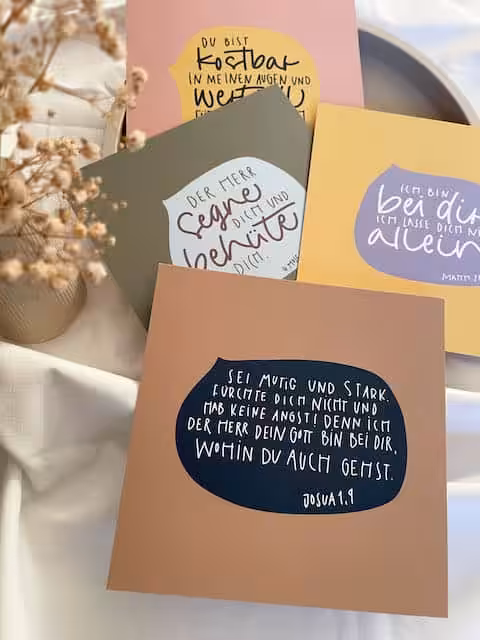 DU BIST
kostbar
IN MEINEN AUGEN UND
DER HERR
segne
DICH UND
behüte
DICH.
ICH BIN
bei dir
ICH LASSE DICH
allein
SEI MUTIG UND STARK.
FÜRCHTE DICH NICHT UND
HAB KEINE ANGST! DENN ICH
DER HERR DEIN GOTT BIN BEI DIR,
WOHIN DU AUCH GEHST.
JOSUA 1,9